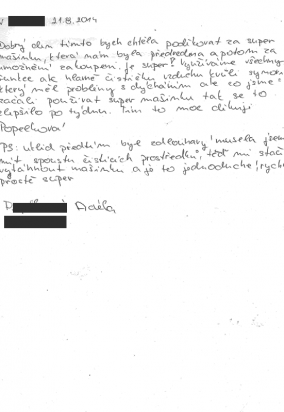 21.8.2014
Dobrý den tímto bych chtěla poděkovat za super
mašinku, která nám byla předvedena a potom za
umožnění zakoupení. Je super! Využíváme všechny
funkce ale hlavně čističku vzduchu kvůli synovi
který měl problémy s dýcháním ale co jsme
začali používat super mašinku tak se to
zlepšilo po týdnu. Tím to moc děkuji
PS: úklid předtím byl zdlouhavý musela jsem
mít spoustu čistících prostředků, teď mi stačí
vytáhnout mašinku a jde to jednoduche, rychle
prostě super
Adéla